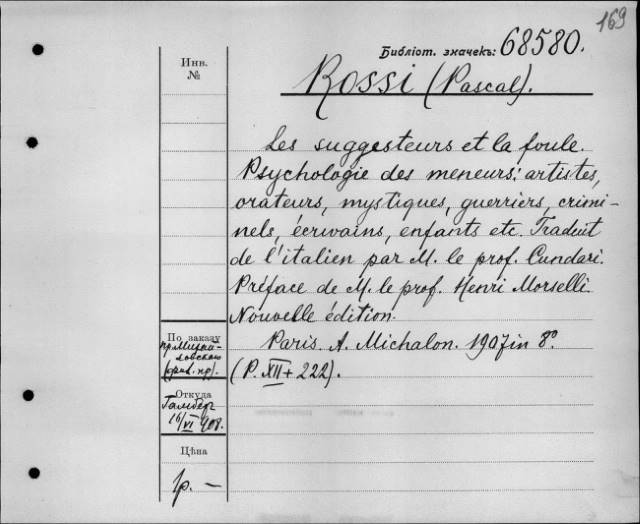 169
Библіот. значекъ: 68580.
Инв.
№
Rossi (Pascal).
Les suggesteurs et la foule.
Psychologie des meneurs: artistes,
orateurs, mystiques, guerriers, crimi-
nels, écrivains, enfants etc. Traduit
de l'italien par M. le prof. Cundari.
Préface de M. le prof. Henri Morselli.
Nouvelle édition.
Paris. A. Michalon. 1907 in 8º
(P. XII + 222).
По заказу
пр. Михай-
ловскаго
Откуда
16/VI 908.
Цѣна
1р. —